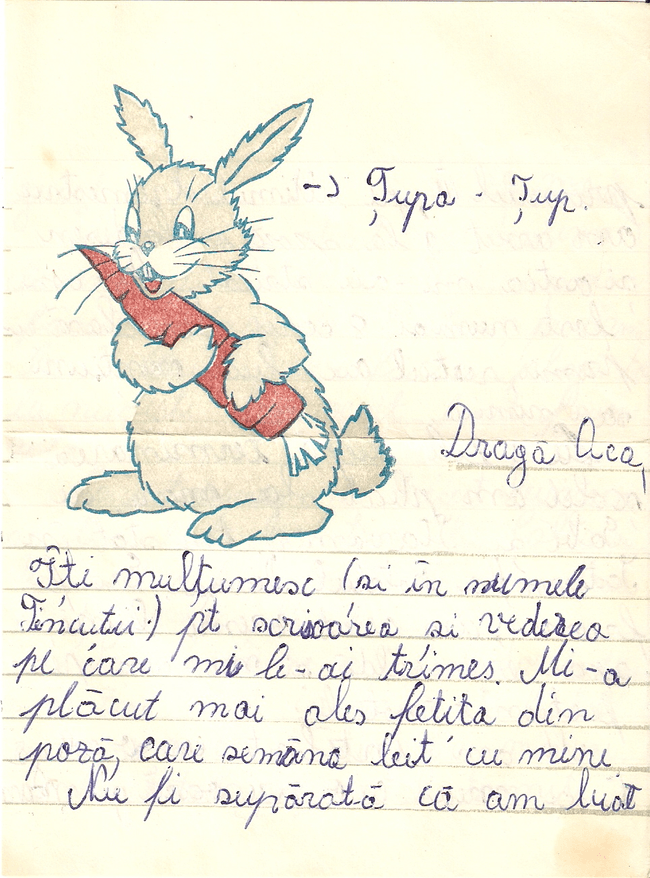 → Țupa - Țup.
Dragă Aca,
Iți mulțumesc (si în numele
Tincuței) pt scrisoarea si vederea
pe care mi le-ai trimes. Mi-a
plăcut mai ales fetita din
poză, care semăna leit cu mine
Nu fi supărată că am luat